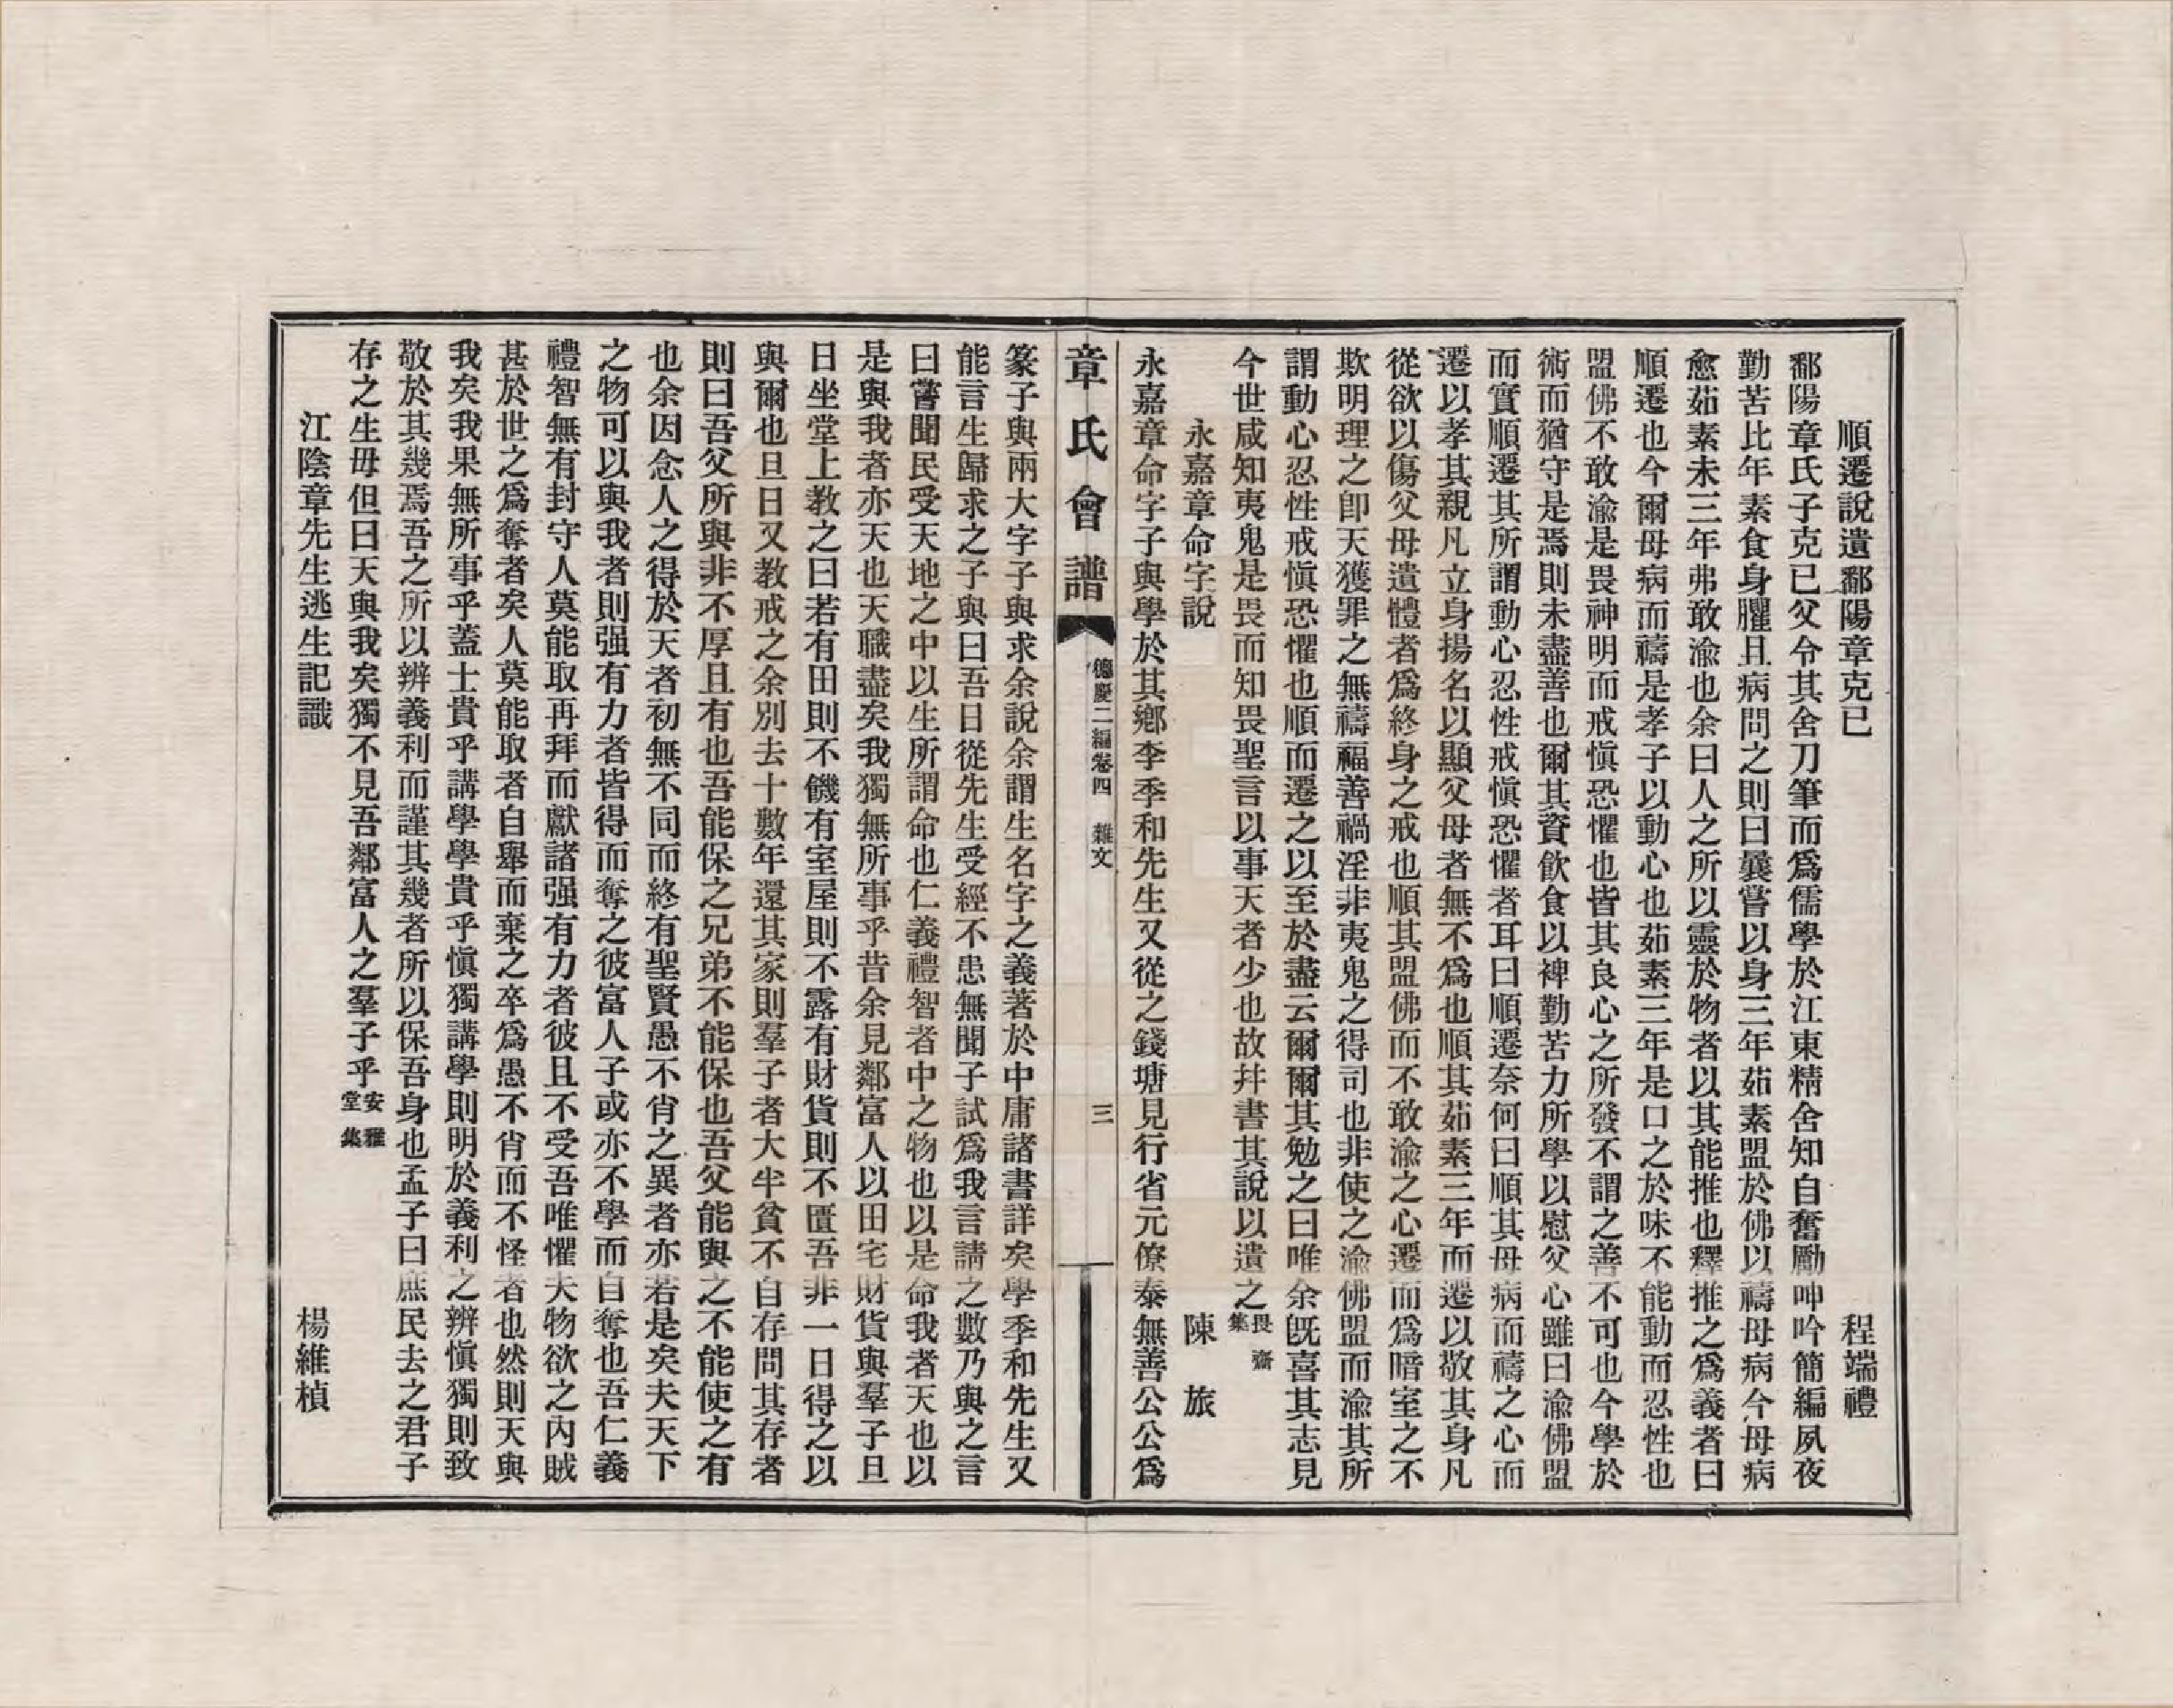 順遷說遺鄱陽章克已　程端禮
鄱陽章氏子克已父令其舍刀筆而爲儒學於江東精舍知自奮勵呻吟簡編夙夜
勤苦比年素食身臞且病問之則曰曩嘗以身三年茹素盟於佛以禱母病今母病
愈茹素未三年弗敢渝也余曰人之所以靈於物者以其能推也釋推之爲義者曰
順遷也今爾母病而禱是孝子以動心也茹素三年是口之於味不能動而忍性也
盟佛不敢渝是畏神明而戒愼恐懼也皆其良心之所發不謂之善不可也今學於
術而猶守是焉則未盡善也爾其資飲食以裨勤苦力所學以慰父心雖曰渝佛盟
而實順遷其所謂動心忍性戒愼恐懼者耳曰順遷奈何曰順其母病而禱之心而
遷以孝其親凡立身揚名以顯父母者無不爲也順其茹素三年而遷以敬其身凡
從欲以傷父母遺體者爲終身之戒也順其盟佛而不敢渝之心遷而爲暗室之不
欺明理之卽天獲罪之無禱福善禍淫非夷鬼之得司也非使之渝佛盟而渝其所
謂動心忍性戒愼恐懼也順而遷之以至於盡云爾爾其勉之曰唯余旣喜其志見
今世咸知夷鬼是畏而知畏聖言以事天者少也故幷書其說以遺之畏齋集
永嘉章命字說　陳　旅
永嘉章命字子與學於其鄕李季和先生又從之錢塘見行省元僚泰無善公公爲
章氏會譜　德慶二編卷四　雜文　三
篆子與兩大字子與求余說余謂生名字之義著於中庸諸書詳矣學季和先生又
能言生歸求之子與曰吾日從先生受經不患無聞子試爲我言請之數乃與之言
曰嘗聞民受天地之中以生所謂命也仁義禮智者中之物也以是命我者天也以
是與我者亦天也天職盡矣我獨無所事乎昔余見鄰富人以田宅財貨與羣子旦
日坐堂上敎之曰若有田則不饑有室屋則不露有財貨則不匱吾非一日得之以
與爾也旦日又敎戒之余別去十數年還其家則羣子者大半貧不自存問其存者
則曰吾父所與非不厚且有也吾能保之兄弟不能保也吾父能與之不能使之有
也余因念人之得於天者初無不同而終有聖賢愚不肖之異者亦若是矣夫天下
之物可以與我者則强有力者皆得而奪之彼富人子或亦不學而自奪也吾仁義
禮智無有封守人莫能取再拜而獻諸强有力者彼且不受吾唯懼夫物欲之內賊
甚於世之爲奪者矣人莫能取者自舉而棄之卒爲愚不肖而不怪者也然則天與
我矣我果無所事乎蓋士貴乎講學學貴乎愼獨講學則明於義利之辨愼獨則致
敬於其幾焉吾之所以辨義利而謹其幾者所以保吾身也孟子曰庶民去之君子
存之生毋但曰天與我矣獨不見吾鄰富人之羣子乎安雅堂集
江陰章先生逃生記識　楊維楨